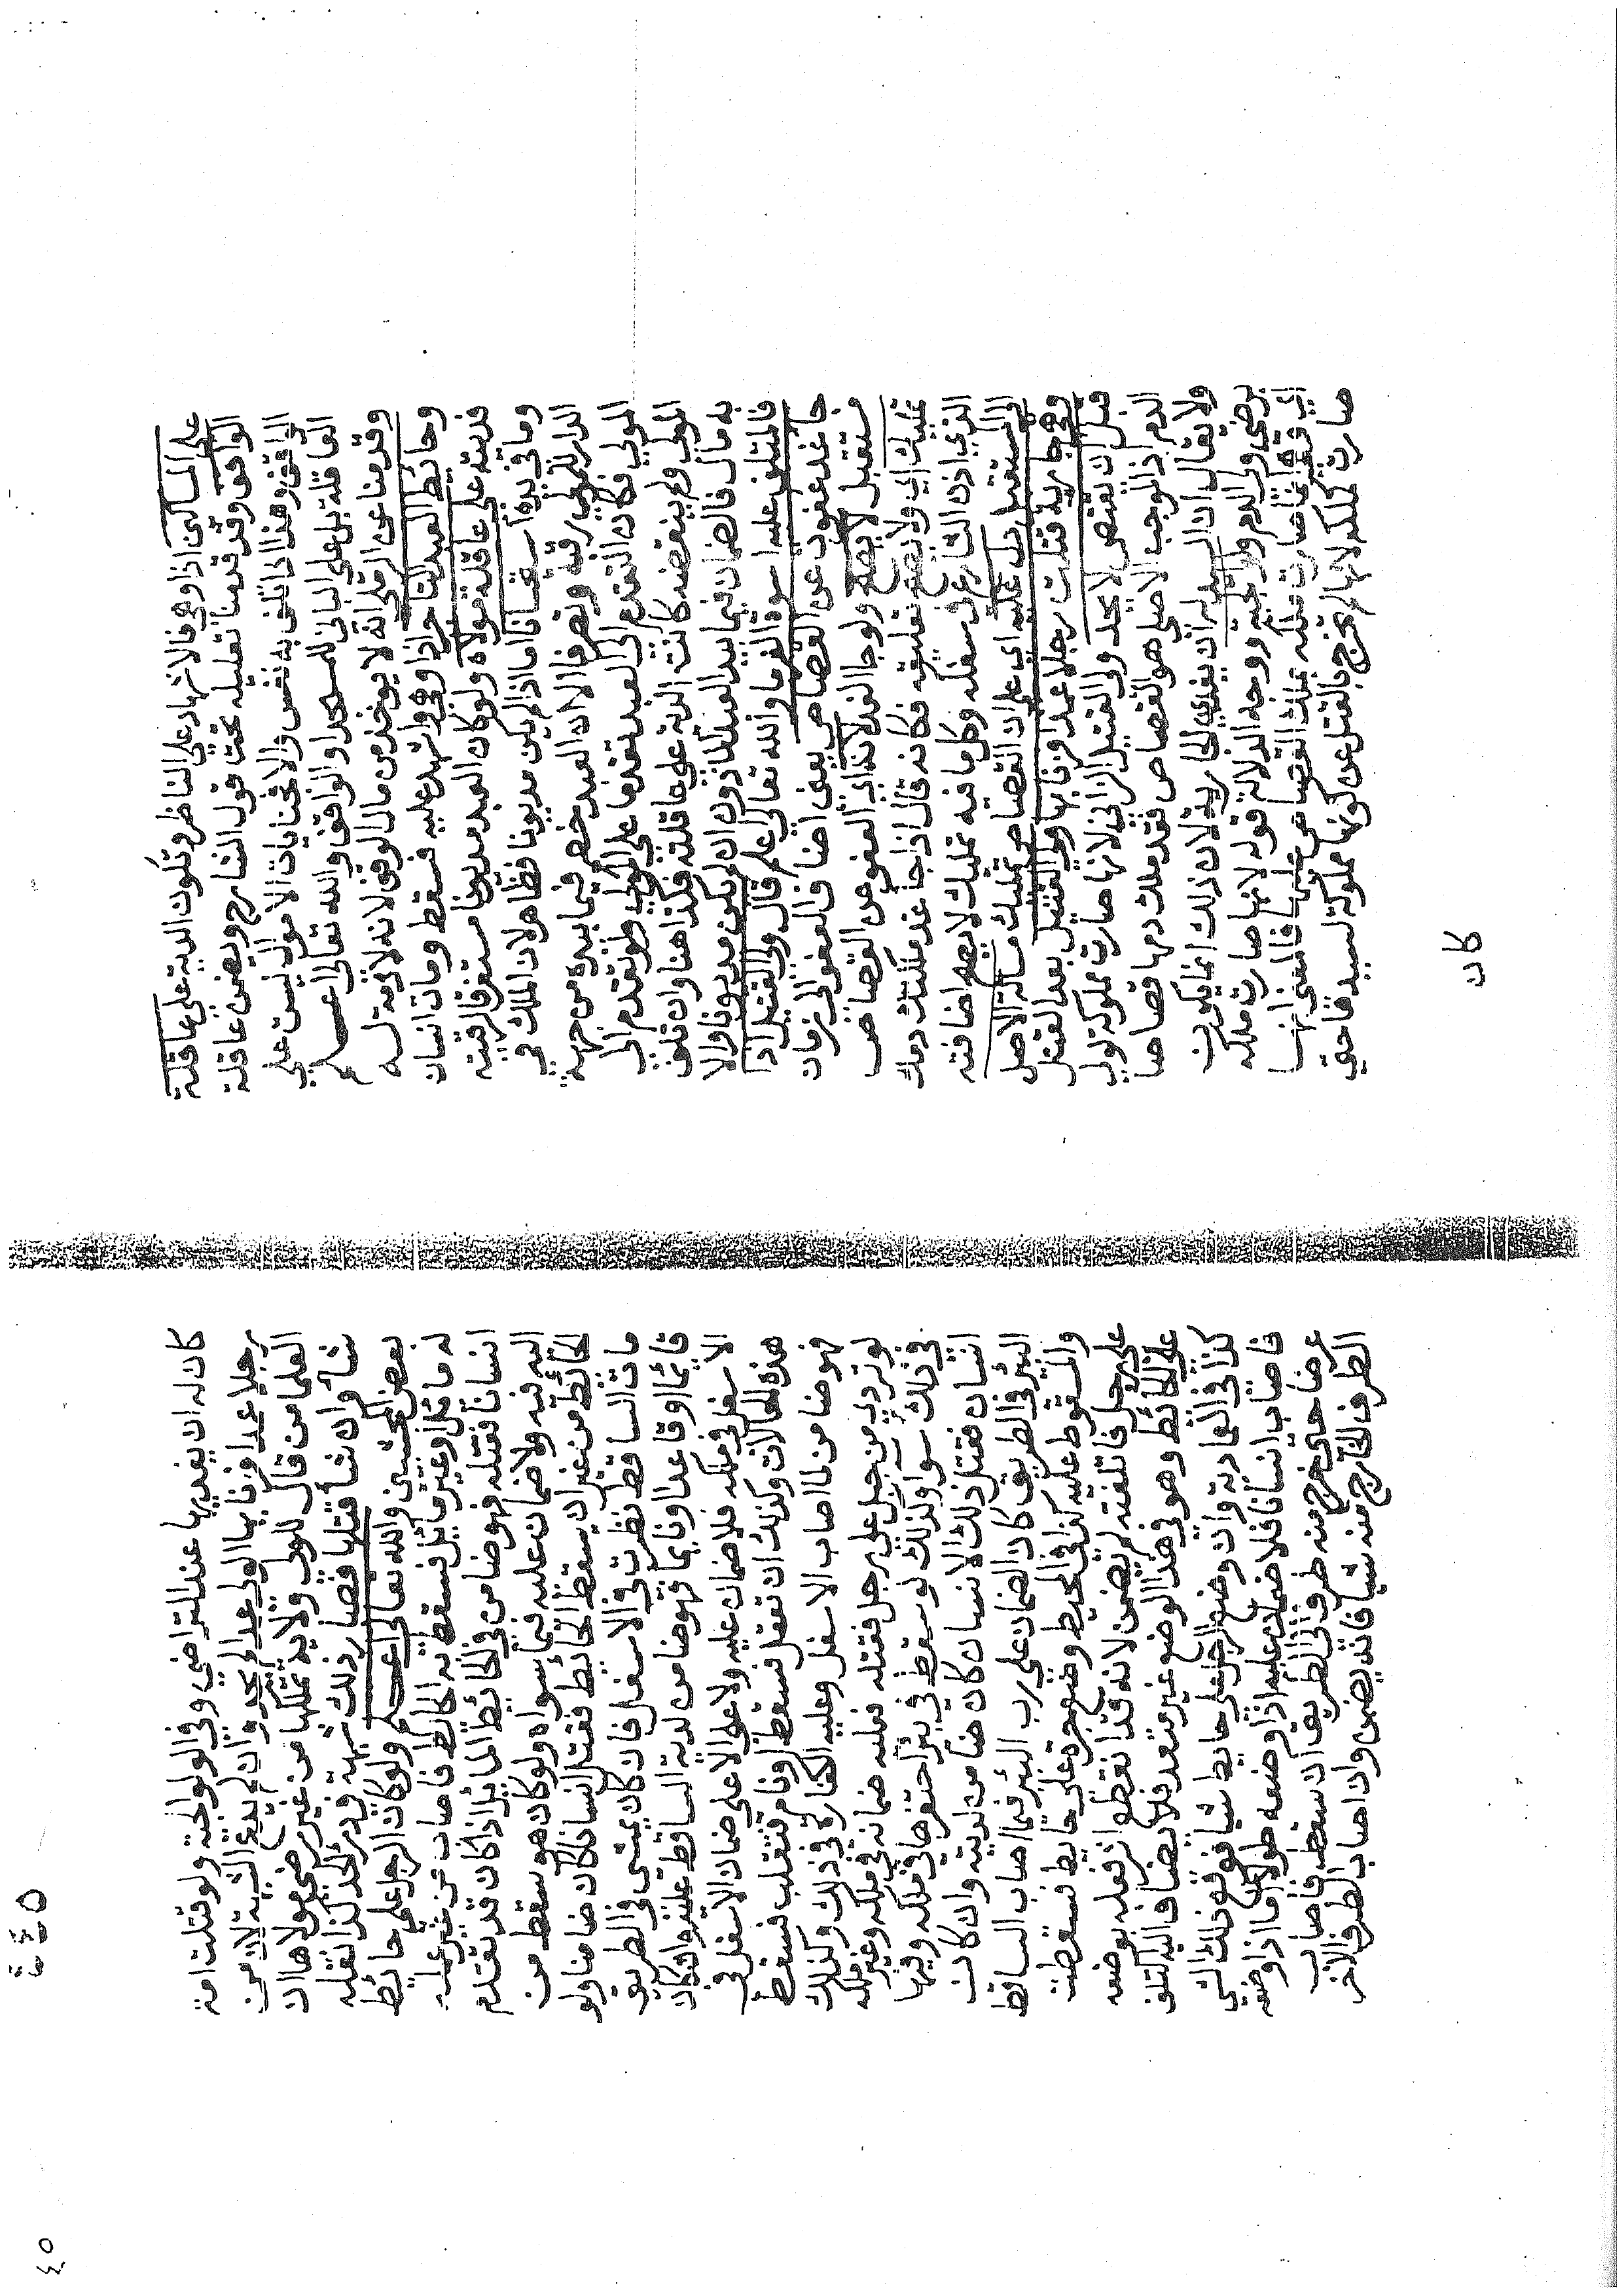 على المساكين اذا وهي فالاشهاد على الناظر وتكون الدية على عاقلة
الواقف وقد قدمنا تعليله تحت قول الشارح ويضمن عاقلة
الواقف وهذا اذا تلف به نفس والا فجنايات الاموال ليست على
العاقلة بل على الباني للمسجد او الواقف والله تعالى اعلم
وقدمنا عن الرملي انه لا يوخذ من مال الوقف لانه لا ذمة له
وحائط العبد التاجر اذا وهي واشهد عليه فسقط ومات انسان
فديته على عاقلة مولاه ولو كان العبد مديونا مستغرقا لرقبته
وما في يده استحسانا اما اذا لم يكن مديونا فظاهر لان الملك في
الدار للمولى رقبة وتصرفا الا ان العبد خصم فيما بيده من جهة
المولى فكان التقدم الى العبد تقدما على المولى ولو تقدم الى
المولى ولم ينقضه كانت الدية على عاقلته فكذا هنا وان تلف
به مال فالضمان فيما بيد العبد الماذون ان لم يكن مديونا والا
فالمتلف عليه اسوة الغرما والله تعالى اعلم قال ولي القتيل اذا
جا غد عفوت عن القصاص يعني اضاف العفو الى زمان
مستقبل لا يصح ولو جا الغد لان العفو عن القصاص
تمليك اي ولا يصح تعليقه فكانه قال اذا جا غد ملكتك دمك
الذي اذن الشارع في سفكه وكل ما فيه تمليك لا يصح اضافته
الى المستقبل دل عليه اي على ان القصاص تمليك مسالة الاصل
وهي جارية قتلت رجلا عمدا فزنا بها ولي القتيل بعد القتل
قبل ان تقتص لا يحد ولي القتيل الزاني لانها صارت مملوكة لولي
الدم اذ الموجب الاصلي هو القصاص فقد ملك دمها قصاصا
ولا يقال ان السيد له ان يفدي الجارية لان ذلك انما يكون
برضى ولي الدم ووجه الدلالة قوله لانها صارت ملكه
اي انما صارت ملكه بملك القصاص عليها فالمعنى انها
صارت كملكه لانها لم تخرج بالقتل عن كونها مملوكة لسيدها حتى
كان
كان له ان يفديها عند التراضي وفي الولوالجية ولو قتلت امة
رجلا عمدا فزنا بها الولي عمدا لم يحد وان لم يدع الشبهة لان من
العلما من قال للولي ولاية تملكها من غير رضى مولاها ان
شا وان شا قتلها فصار ذلك شبهة في درء الحد كذا نقله
بعض المحشين والله تعالى اعلم ولو كان الرجل على حائط
له مائل او غير مائل فسقط به الحائط فاصاب من غير عمله
انسانا فقتله فهو ضامن في الحائط المائل اذا كان قد تقدم
اليه فيه ولا ضمان عليه فيما سواه ولو كان هو سقط من
الحائط من غير ان يسقط الحائط فقتل انسانا كان ضامنا ولو
مات الساقط نظرت في الاسفل فان كان يمشي في الطريق
فلا ضمان عليه وان كان
قائما او قاعدا او نائما فهو ضامن لدية الساقط عليه
الاسفل في ملكه فلا ضمان عليه ولا على الاعلى ضمان الاسفل في
هذه الحالات وكذلك ان تعقل فسقط او نام فتقلب فسقط
فهو ضامن لما اصاب الاسفل وعليه الكفارة في ذلك وكذلك
لو تردى من جبل على رجل فقتله فعليه ضمانه في ملكه وغير ملكه
في ذلك سوا وكذلك لو سقط في بئر احتفرها في ملكه وفيها
انسان فقتل ذلك الانسان كان ضامن لديته وان كانت
البئر في الطريق كان الضمان على رب البئر فيما اصاب الساقط
والمسقوط عليه كذا في المحيط وضع جرة على حايط فسقطت
على رجل فاتلفته لم يضمن لانه قد انقطع اثر فعله بوضعه
على الحائط وهو في هذا الوضع غير متعد فلا يضاف اليه التلف
كذا في العمادية وان وضع الرجل على حايط شيا فوقع ذلك الشي
فاصاب انسانا فلا ضمان عليه اذا وضعه طولا اما اذا وضعه
عرضا حتى خرج منه طرف الى الطريق ان سقط فاصاب
الطرف الخارج منه شيا فانه يضمن وان اصاب الطرف الاخر
٤٥